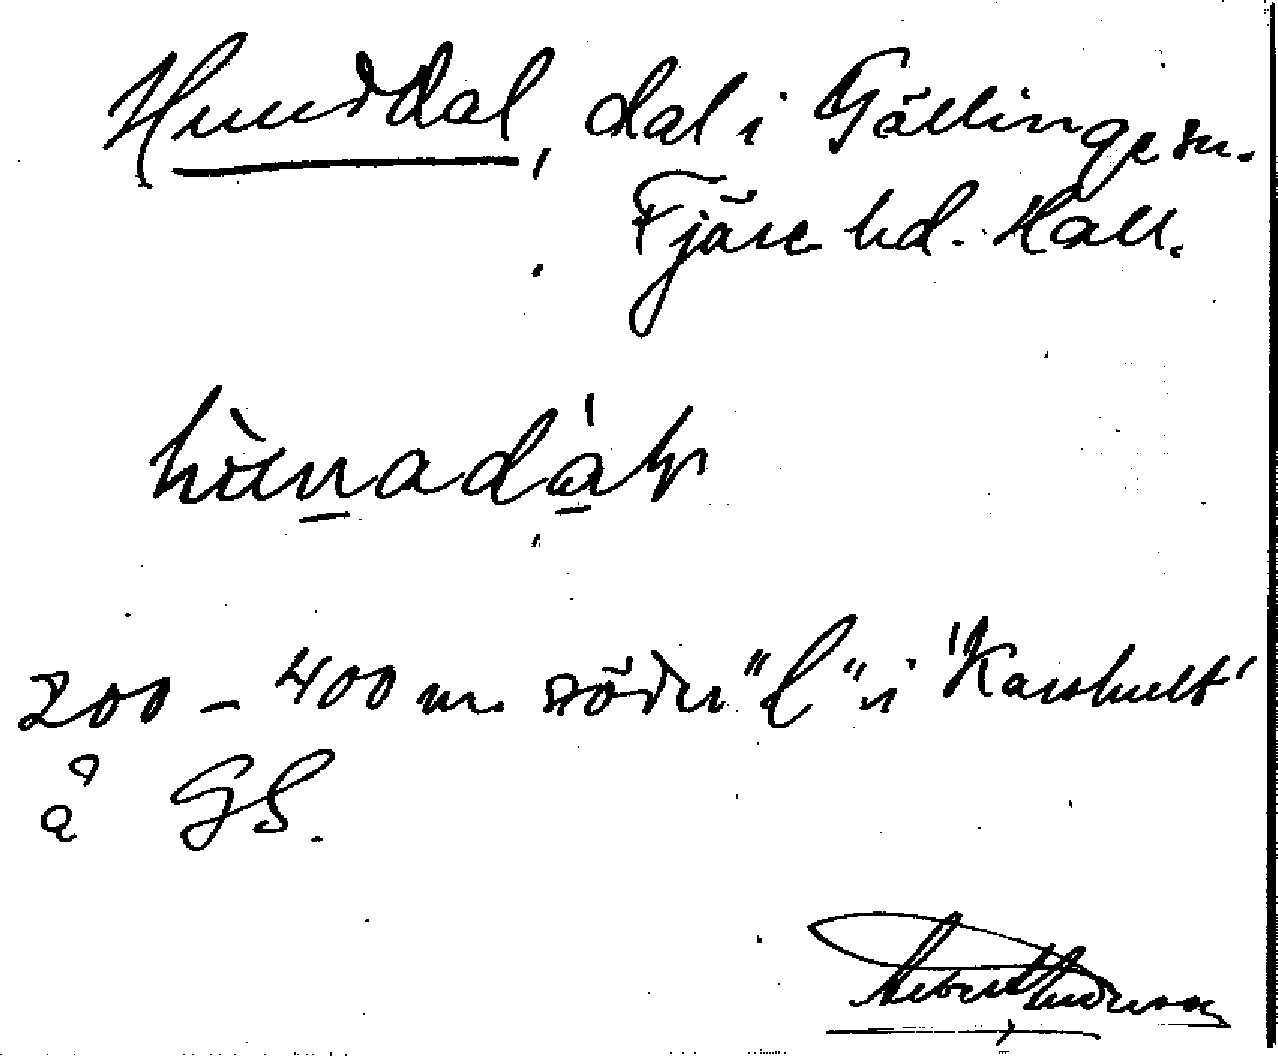 Hunddal, dal i Gällinge sn.
Fjäre hd. Hall.
200 – 400 m. söder "l" i 'Karshult'
å GS.
Albert Anderson